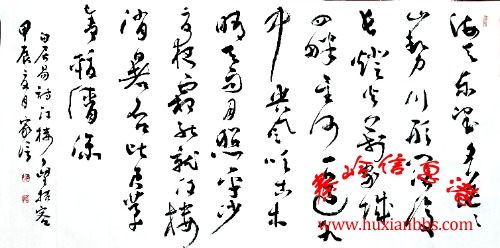 海天东望夕茫茫
山势川形阔復
长燈火万家城
四畔星河一道水
中央風吹古木
晴天雨月照平沙
夏夜霜能就江楼
消暑否比君茅
舍較清涼
白居易诗江楼夕望招客
甲辰夏月家信
www.huxianbbs.com